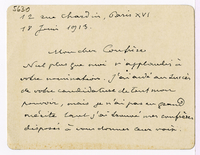 5630
12 rue Chardin, Paris XVI
18 Juin 1913.
Mon cher Confrère
Nul plus que moi n'applaudit à
votre nomination. J'ai aidé au succès
de votre candidature de tout mon
pouvoir, mais je n'ai pas eu grand
mérite tant j'ai trouvé nos confrères
disposés à vous donner leur voix.